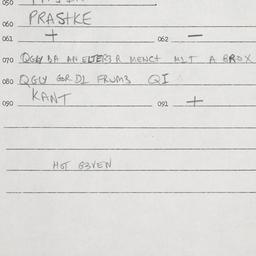 050
060 PRASTKE
061 + 062 -
070 QGLY BA AN ELTER3R MENCT M1T A BROX
080 QGLY GOR D1 FRUM3 QI
090 KANT 091 +
HOT G3VEN